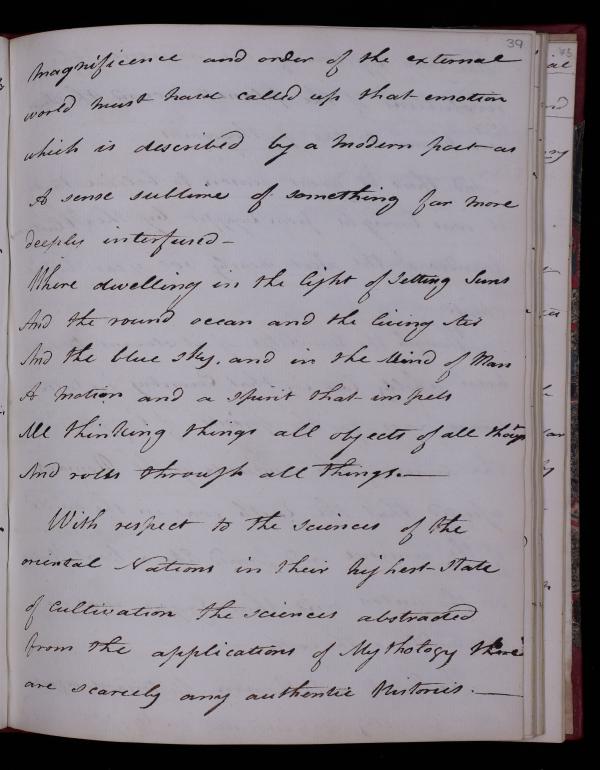 39
magnificence and order of the external
world must have called up that emotion
which is described by a modern poet as
A sense sublime of something far more
deeply interfused —
Where dwelling in the light of Setting Suns
And the round ocean and the living Air
And the blue sky, and in the Mind of Man
A motion and a spirit that impels
All thinking things all objects of all thots
And rolls through all things. —
With respect to the sciences of the
oriental Nations in their highest State
of cultivation the sciences abstracted
from the applications of Mythology there
are scarcely any authentic Histories. —